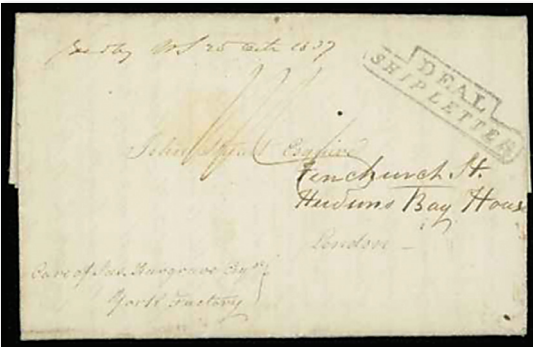 25 Octr 1837
DEAL
SHIP LETTER
John Esquire
Fenchurch St.
Hudsons Bay House
London
Care of Jas. Hargrave Esqr
York Factory